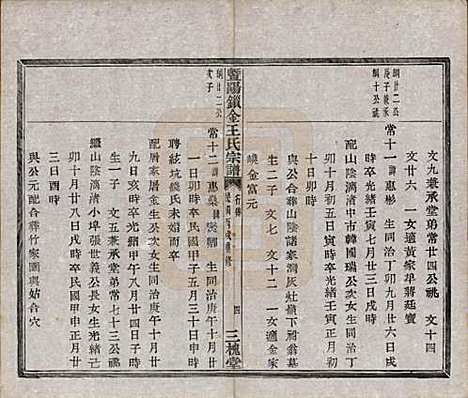 綱廿二公
庚子兼承
綱十公祧
文九兼承堂弟常廿四公祧 文十四
文廿六 一女適黃家埠蔣廷寶
常十一諱惠彬 生同治丁卯九月廿六日戌
時卒光緒壬寅七月廿三日戌時
配山陰漓渚中市韓國瑞公次女生同治丁
卯十月初三日寅時卒光緒壬寅正月初
十日卯時
與公合葬山陰諸家灣灰灶嶺下前岸
生二子 文七 文十二 一女適金家
嶴金富元
暨陽鎖金王氏宗譜
四
三槐堂
綱廿二公
亥子
常十二諱惠燊 生同治庚午十月廿
一日卯時卒民國甲子五月三十日卯時
聘紘坑錢氏未婚而卒
配厝家居金生瑞公長女生同治庚午十月廿
九日亥時卒光緒甲午四月十二日辰時
生一子 文五兼承堂弟常七十三公祧
繼山陰漓渚小埠張世義公長女生光緒己
卯十月廿八日戌時卒民國甲申正月廿
三日酉時
與公元配合葬竹家園與姑合穴